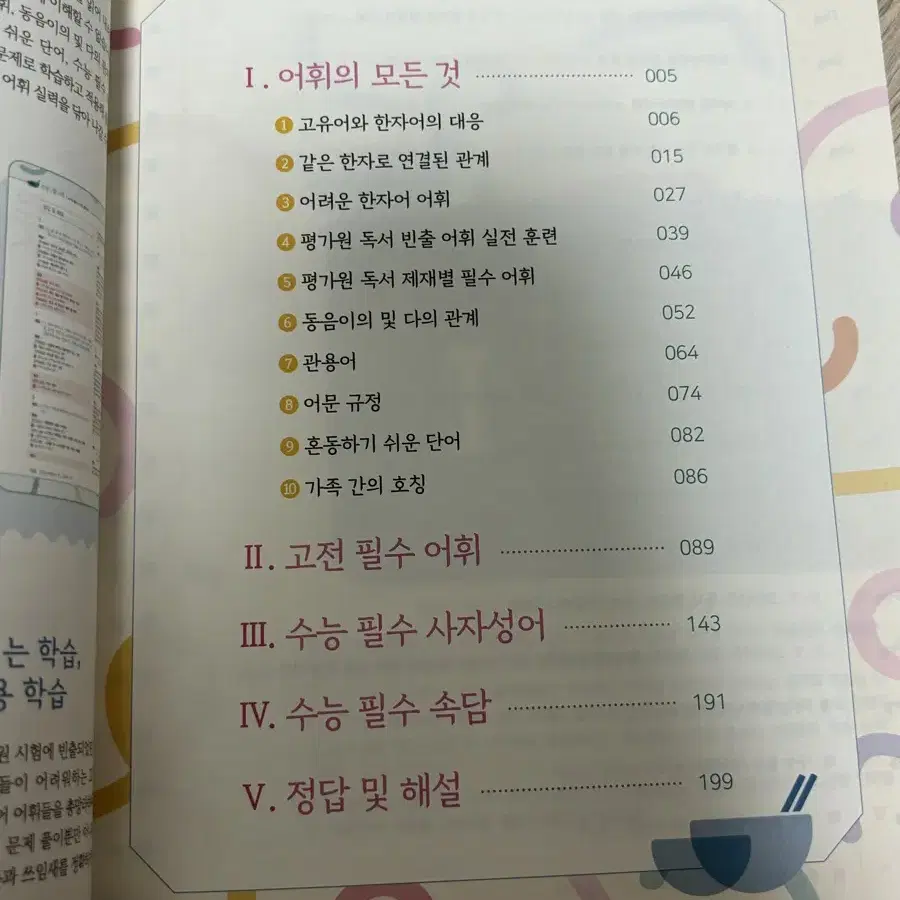 이해할 수 없
휘, 동음이의 및 다의
쉬운 단어, 수능 필수
문제로 학습하고 적용하
어휘 실력을 닦아 나갈
는 학습,
용 학습
원 시험에 빈출되었
들이 어려워하는 고
어 어휘들을 총망라
문제 풀이뿐만 아
과 쓰임새를 정확
Ⅰ. 어휘의 모든 것 005
1 고유어와 한자어의 대응 006
2 같은 한자로 연결된 관계 015
3 어려운 한자어 어휘 027
4 평가원 독서 빈출 어휘 실전 훈련 039
5 평가원 독서 제재별 필수 어휘 046
6 동음이의 및 다의 관계 052
7 관용어 064
8 어문 규정 074
9 혼동하기 쉬운 단어 082
10 가족 간의 호칭 086
Ⅱ. 고전 필수 어휘 089
Ⅲ. 수능 필수 사자성어 143
Ⅳ. 수능 필수 속담 191
Ⅴ. 정답 및 해설 199